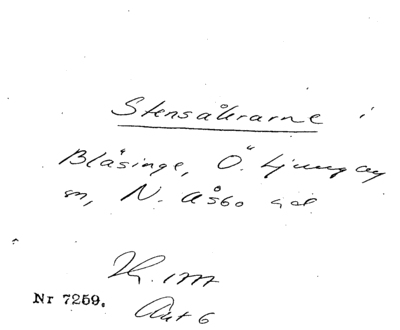 Stensåkrarne i
Blåsinge, Ö. Ljungby
sn, N. Åsbo hd
Nr 7259.